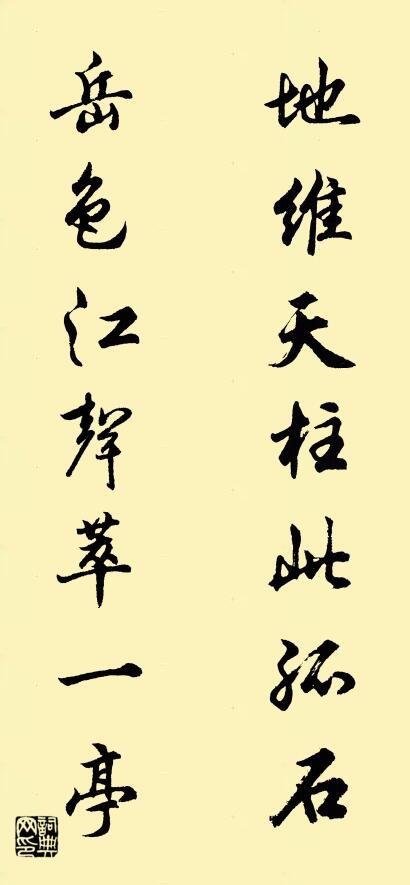 地维天柱此孤石
岳色江声萃一亭
詞典网印